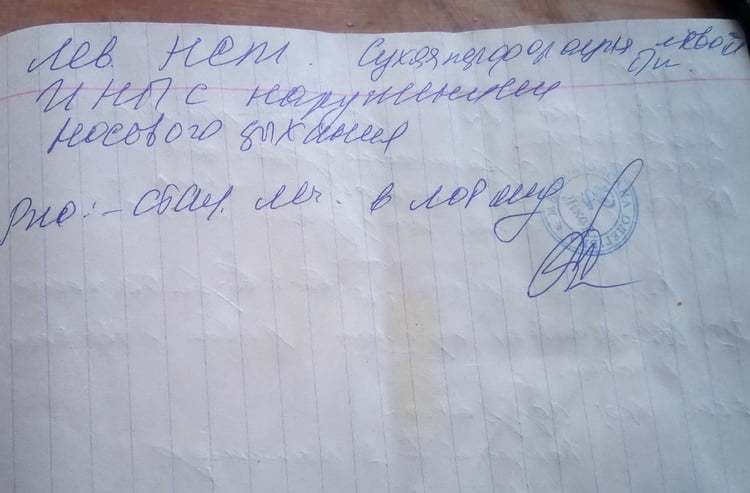 лев НСТ. Сухая перфорация левой
б/п.
ИНП с нарушением
носового дыхания
Рно:- стац. леч. в лор отд